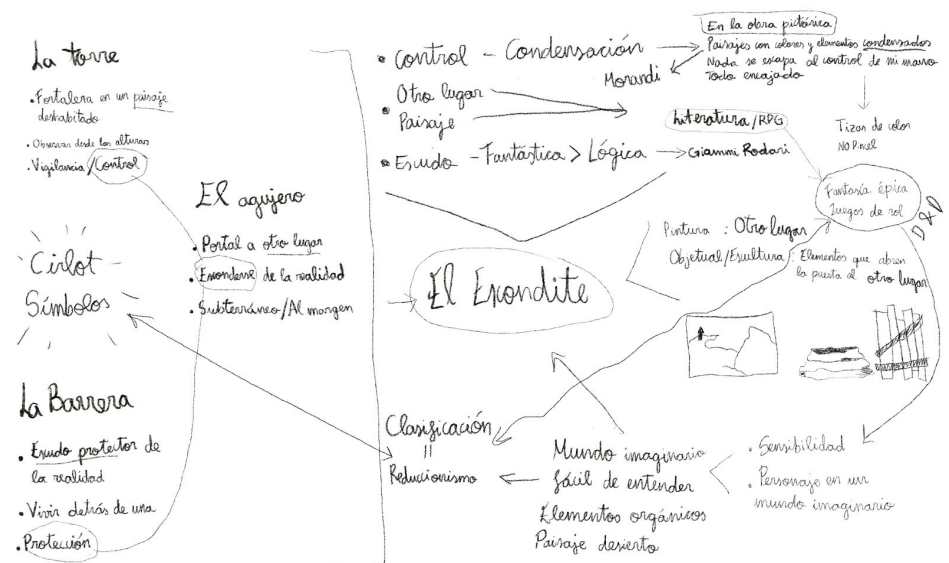 La torre
• Fortaleza en un paisaje
deshabitado
• Observar desde las alturas
• Vigilancia/Control
El agujero
• Portal a otro lugar
• Esconderse de la realidad
• Subterráneo/Al margen
Cirlot
Símbolos
La Barrera
• Escudo protector de
la realidad
• Vivir detrás de una
• Protección
• Control - Condensación
Morandi
En la obra pictórica
Paisajes con colores y elementos condensados
Nada se escapa al control de mi mano
Todo encajado
Tizas de color
NO Pincel
• Otro lugar
Paisaje
Literatura/RPG
• Escudo - Fantástica > Lógica
Gianni Rodari
Fantasía épica
Juegos de rol
D&D
El Escondite
Pintura : Otro lugar
Objetual/Escultura : Elementos que abren
la puerta al otro lugar
Clasificación
=
Reduccionismo
Mundo imaginario
fácil de entender
Elementos orgánicos
Paisaje desierto
• Sensibilidad
• Personaje en un
mundo imaginario